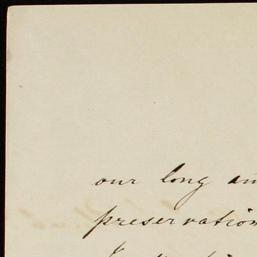 our long an
preservation